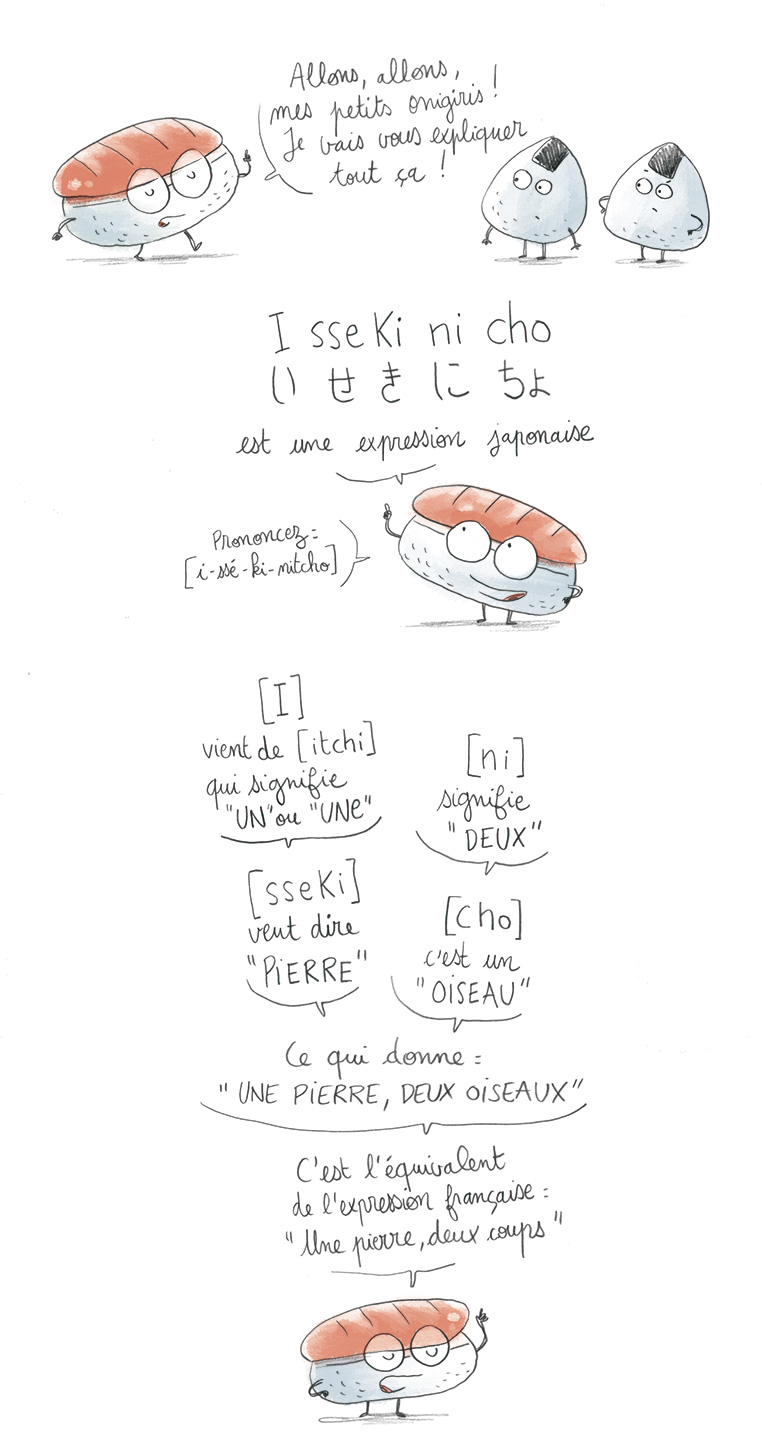 Allons, allons,
mes petits onigiris !
Je vais vous expliquer
tout ça !
I sseKi ni cho
い せ き に ちょ
est une expression japonaise
Prononcez :
[i-ssé-ki-nitcho]
[I]
vient de [itchi]
qui signifie
"UN" ou "UNe"
[sseKi]
veut dire
"PiERRE"
[ni]
signifie
"DEUX"
[cho]
c'est un
"OiSEAU"
Ce qui donne :
"UNE PiERRE, DEUX OiSEAUX"
C'est l'équivalent
de l'expression française :
"Une pierre, deux coups"